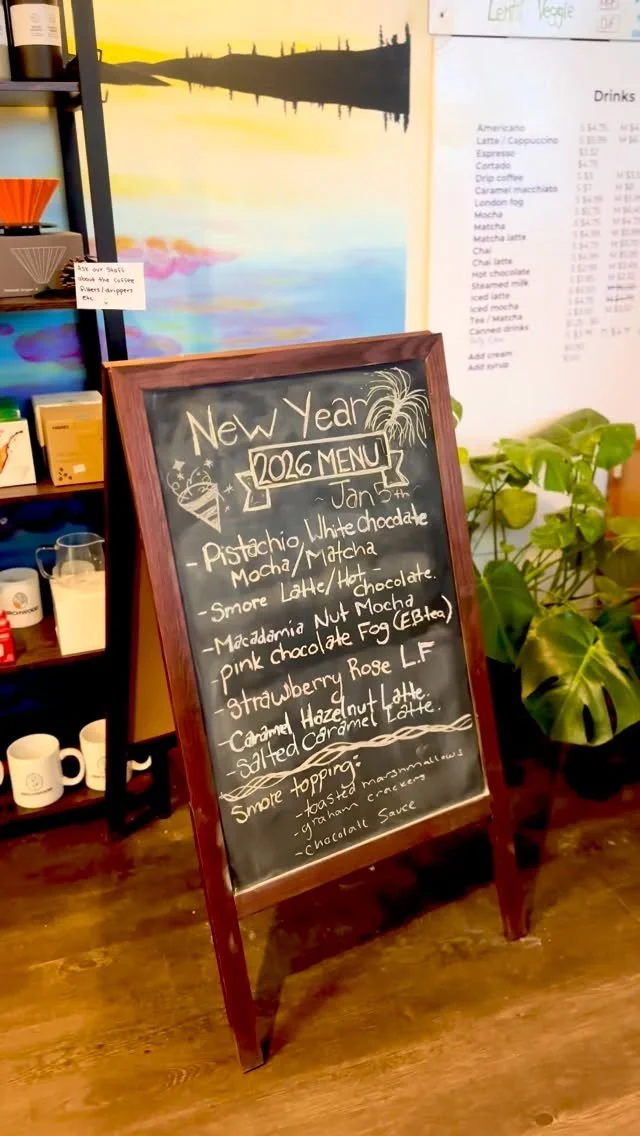 Lentil Veggie
Drinks
Americano
Latte / Cappuccino
Espresso
Cortado
Drip coffee
Caramel macchiato
London fog
Mocha
Matcha
Matcha latte
Chai
Chai latte
Hot chocolate
Steamed milk
Iced latte
Iced mocha
Tea / Matcha
Canned drinks
Add cream
Add syrup
Ask our staff
about the coffee
filters/drippers
etc
New Year
2026 MENU
~ Jan 5th ~
- Pistachio White chocolate
Mocha/Matcha
- Smore Latte/Hot chocolate.
- Macadamia Nut Mocha
- Pink chocolate Fog (EB tea)
- Strawberry Rose L.F
- Caramel Hazelnut Latte.
- Salted Caramel Latte.
Smore topping:
- toasted marshmallows
- graham crackers
- Chocolate Sauce